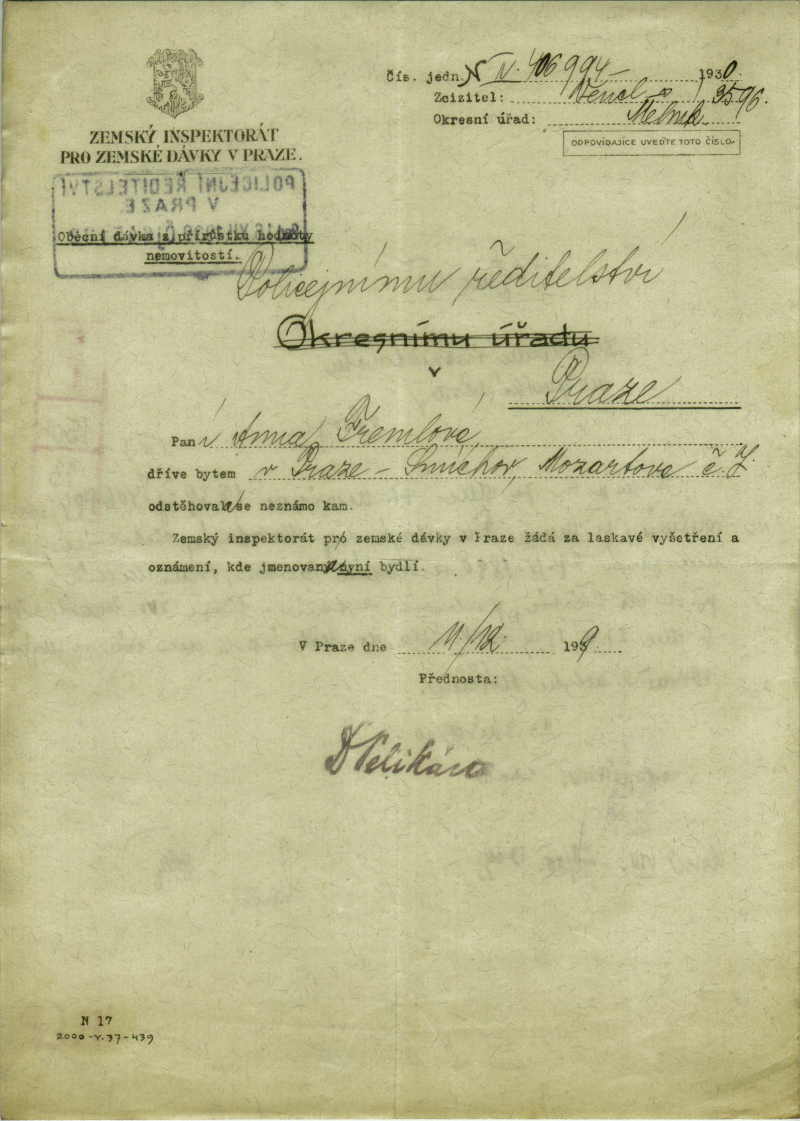 ZEMSKÝ INSPEKTORÁT
PRO ZEMSKÉ DÁVKY V PRAZE.
Čís. jedn. N IV. 406994 1930.
Zcizitel: 3596.
Okresní úřad: Mělník
ODPOVÍDAJÍCE UVEĎTE TOTO ČÍSLO.
POLICEJNÍ ŘEDITELSTVÍ
V PRAZE
Obecní dávka z přírůstku hodnoty
nemovitostí.
Policejnímu ředitelství
Okresnímu úřadu
v
Praze
Paní Anna Fremlová,
dříve bytem v Praze - Smíchov, Mozartova č. 7.
odstěhovala se neznámo kam.
Zemský inspektorát pró zemské dávky v Praze žádá za laskavé vyšetření a
oznámení, kde jmenovaná nyní bydlí.
V Praze dne 11/12. 1939.
Přednosta:
D Pelikán
N 17
2000-V.37-439